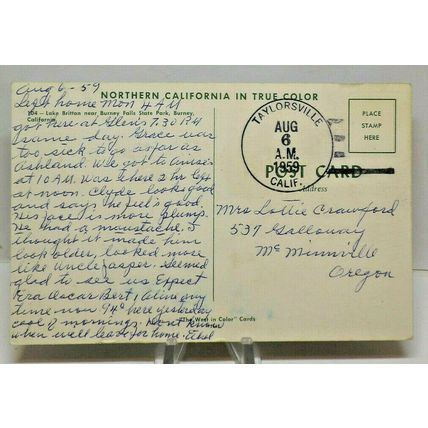 Aug 6-59
NORTHERN CALIFORNIA IN TRUE COLOR
Left home Mon 4 AM
104 – Lake Britton near Burney Falls State Park, Burney,
California
got here at Glen's 7:30 P.M
same day. Grace was
too sick to go as far as
Ashland. We got to
at 10 AM. Was there 2 hr left
at noon. Clyde looks good
and says he feels good.
His face is more plump.
He had a moustache. I
thought it made him
look older, looked more
like Uncle Jasper, seemed
glad to see us Expect
Era Oscar Bert, any
time now 94° here yesterday
cool of mornings. Dont know
when we'll leave for home. Ethel
TAYLORSVILLE
AUG
6
A.M.
1959
CALIF.
PLACE
STAMP
HERE
POST CARD
Address
Mrs Lottie Crawford
537 Galloway
Mc Minnville
Oregon
"The West in Color" Cards